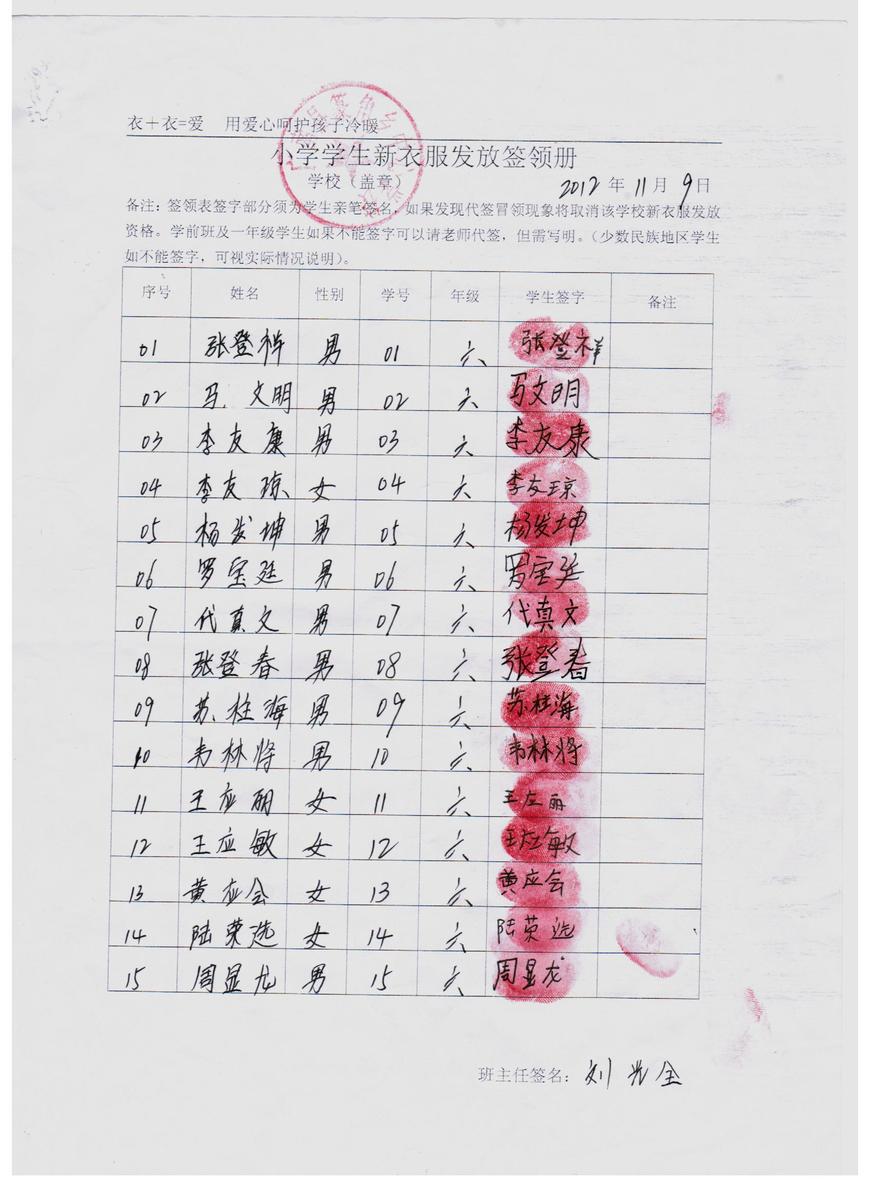 衣+衣=爱 用爱心呵护孩子冷暖
小学学生新衣服发放签领册
学校（盖章） 2012年11月9日
备注：签领表签字部分须为学生亲笔签名，如果发现代签冒领现象将取消该学校新衣服发放
资格。学前班及一年级学生如果不能签字可以请老师代签，但需写明。（少数民族地区学生
如不能签字，可视实际情况说明）。
序号 姓名 性别 学号 年级 学生签字 备注
01 张登祥 男 01 六 张登祥
02 马文明 男 02 六 马文明
03 李友康 男 03 六 李友康
04 李友琼 女 04 六 李友琼
05 杨发坤 男 05 六 杨发坤
06 罗宝廷 男 06 六 罗宝廷
07 代真文 男 07 六 代真文
08 张登春 男 08 六 张登春
09 苏桂海 男 09 六 苏桂海
10 韦林将 男 10 六 韦林将
11 王应丽 女 11 六 王应丽
12 王应敏 女 12 六 王应敏
13 黄应会 女 13 六 黄应会
14 陆荣选 女 14 六 陆荣选
15 周显龙 男 15 六 周显龙
班主任签名：刘光全